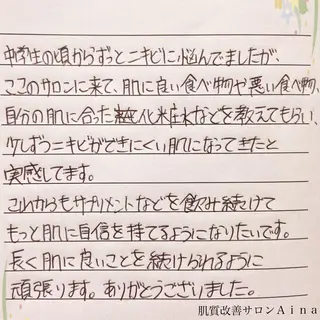 中学生の頃からずっとニキビに悩んでましたが、
ここのサロンに来て、肌に良い食べ物や悪い食べ物、
自分の肌に合った化粧水などを教えてもらい、
少しずつニキビができにくい肌になってきたと
実感してます。
これからもサプリメントなどを飲み続けて
もっと肌に自信を持てるようになりたいです。
長く肌に良いことを続けられるように
頑張ります。ありがとうございました。
肌質改善サロンAina